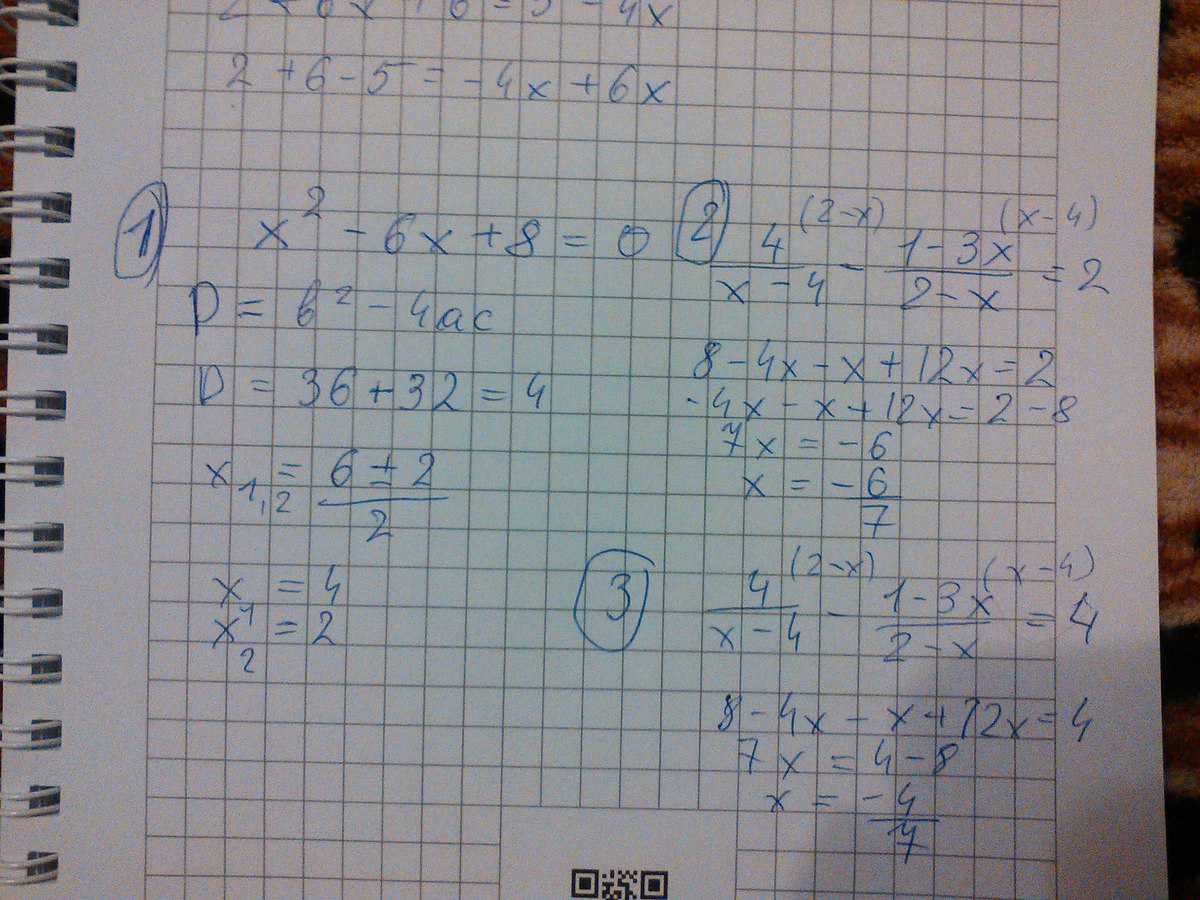 2 + 6 - 5 = -4x + 6x
1
x² - 6x + 8 = 0
D = b² - 4ac
D = 36 + 32 = 4
x₁,₂ = (6 ± 2)/2
x₁ = 4
x₂ = 2
2
4/(x - 4) (2-x) - (1 - 3x)/(2 - x) (x-4) = 2
8 - 4x - x + 12x = 2
-4x - x + 12x = 2 - 8
7x = -6
x = -6/7
3
4/(x - 4) (2-x) - (1 - 3x)/(2 - x) (x-4) = 4
8 - 4x - x + 12x = 4
7x = 4 - 8
x = -4/7